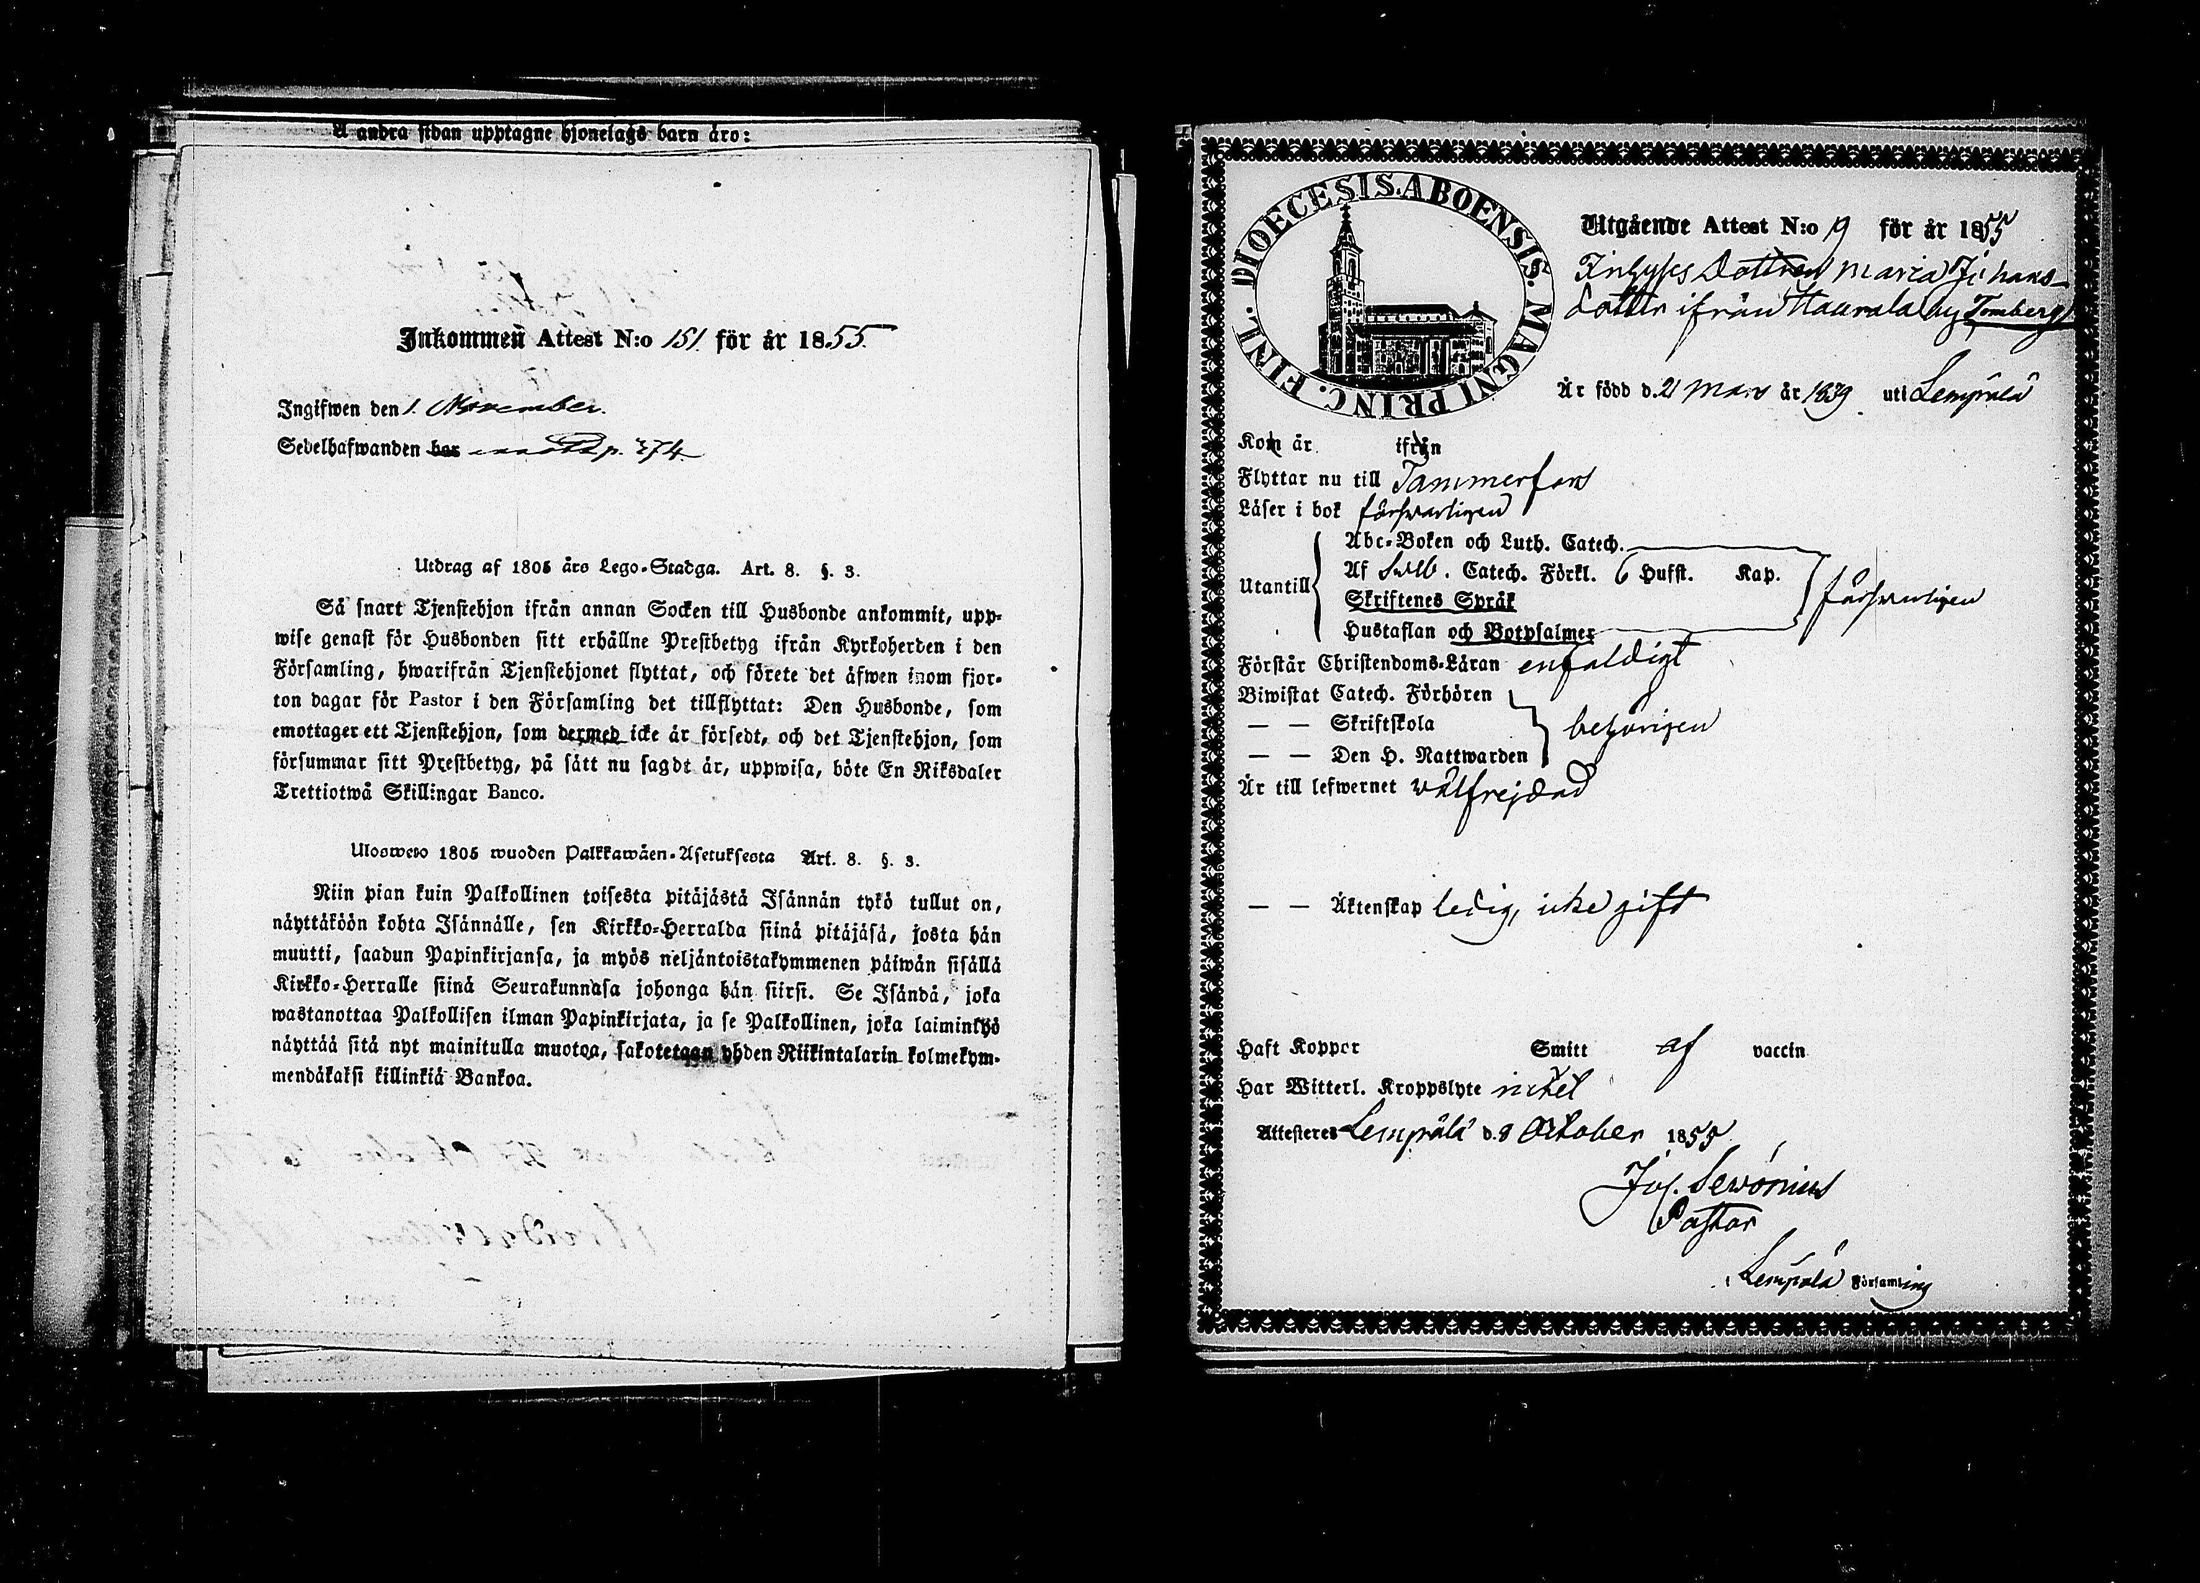 A andra sidan upptagne hjonelags barn äro:
Inkommen Attest N:o 151 för år 1855.
Ingifwen den 1. November.
Sedelhafwanden har p. 274.
Utdrag af 1805 års Lego-Stadga. Art. 8. §. 3.
Så snart Tjenstehjon ifrån annan Socken till Husbonde ankommit, upp-
wise genast för Husbonden sitt erhållne Prestbetyg ifrån Kyrkoherden i den
Församling, hwarifrån Tjenstehjonet flyttat, och förete det äfwen inom fjor-
ton dagar för Pastor i den Församling det tillflyttat: Den Husbonde, som
emottager ett Tjenstehjon, som dermed icke är försedt, och det Tjenstehjon, som
försummar sitt Prestbetyg, på sätt nu sagdt är, uppwisa, böte En Riksdaler
Trettiotwå Skillingar Banco.
Ulosweto 1805 wuoden Palkkawäen-Asetuksesta Art. 8. §. 3.
Niin pian kuin Palkollinen toisesta pitäjästä Isännän tykö tullut on,
näyttäköön kohta Isännälle, sen Kirkko-Herralda siinä pitäjäsä, josta hän
muutti, saadun Papinkirjansa, ja myös neljäntoistakymmenen päiwän sisällä
Kirkko-Herralle siinä Seurakunnasa johonga hän siirsi. Se Isändä, joka
wastanottaa Palkollisen ilman Papinkirjata, ja se Palkollinen, joka laiminlyö
näyttää sitä nyt mainitulla muotoa, sakotetaan yhden Riikintalarin kolmekym-
mendäkaksi killinkiä Bankoa.
DIOECESIS. ABOENSIS. MAGNI PRINC. FINL.
Utgående Attest N:o 9 för år 1855
Inhyses Dottren Maria Johans-
dotter ifrån Haurala by Tomberg
Är född d. 21 Mars år 1839 uti Lempälä
Kom år ifrån
Flyttar nu till Tammerfors
Läser i bok försvarligen
Abc-Boken och Luth. Catech.
Utantill Af Sveb. Catech. Förkl. 6 Hufst. Kap. försvarligen
Skriftenes Språk
Hustaflan och Botpsalmer
Förstår Christendoms-Läran enfaldigt
Biwistat Catech. Förhören
— — Skriftskola behörigen
— — Den H. Nattwarden
Är till lefwernet välfrejdad
— — Äktenskap ledig, icke gift
Haft Koppor Smitt af vaccin
Har Witterl. Kroppslyte intet
Attesteres Lempälä d. 8 October 1855
Jos. Sewonius
Pastor
i Lempälä Församling